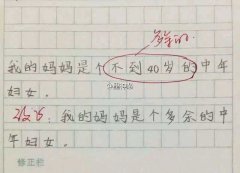 多余的.
我的妈妈是个不到40岁的中年
妇女。
改成:我的妈妈是个多余的中
年妇女。
修正栏